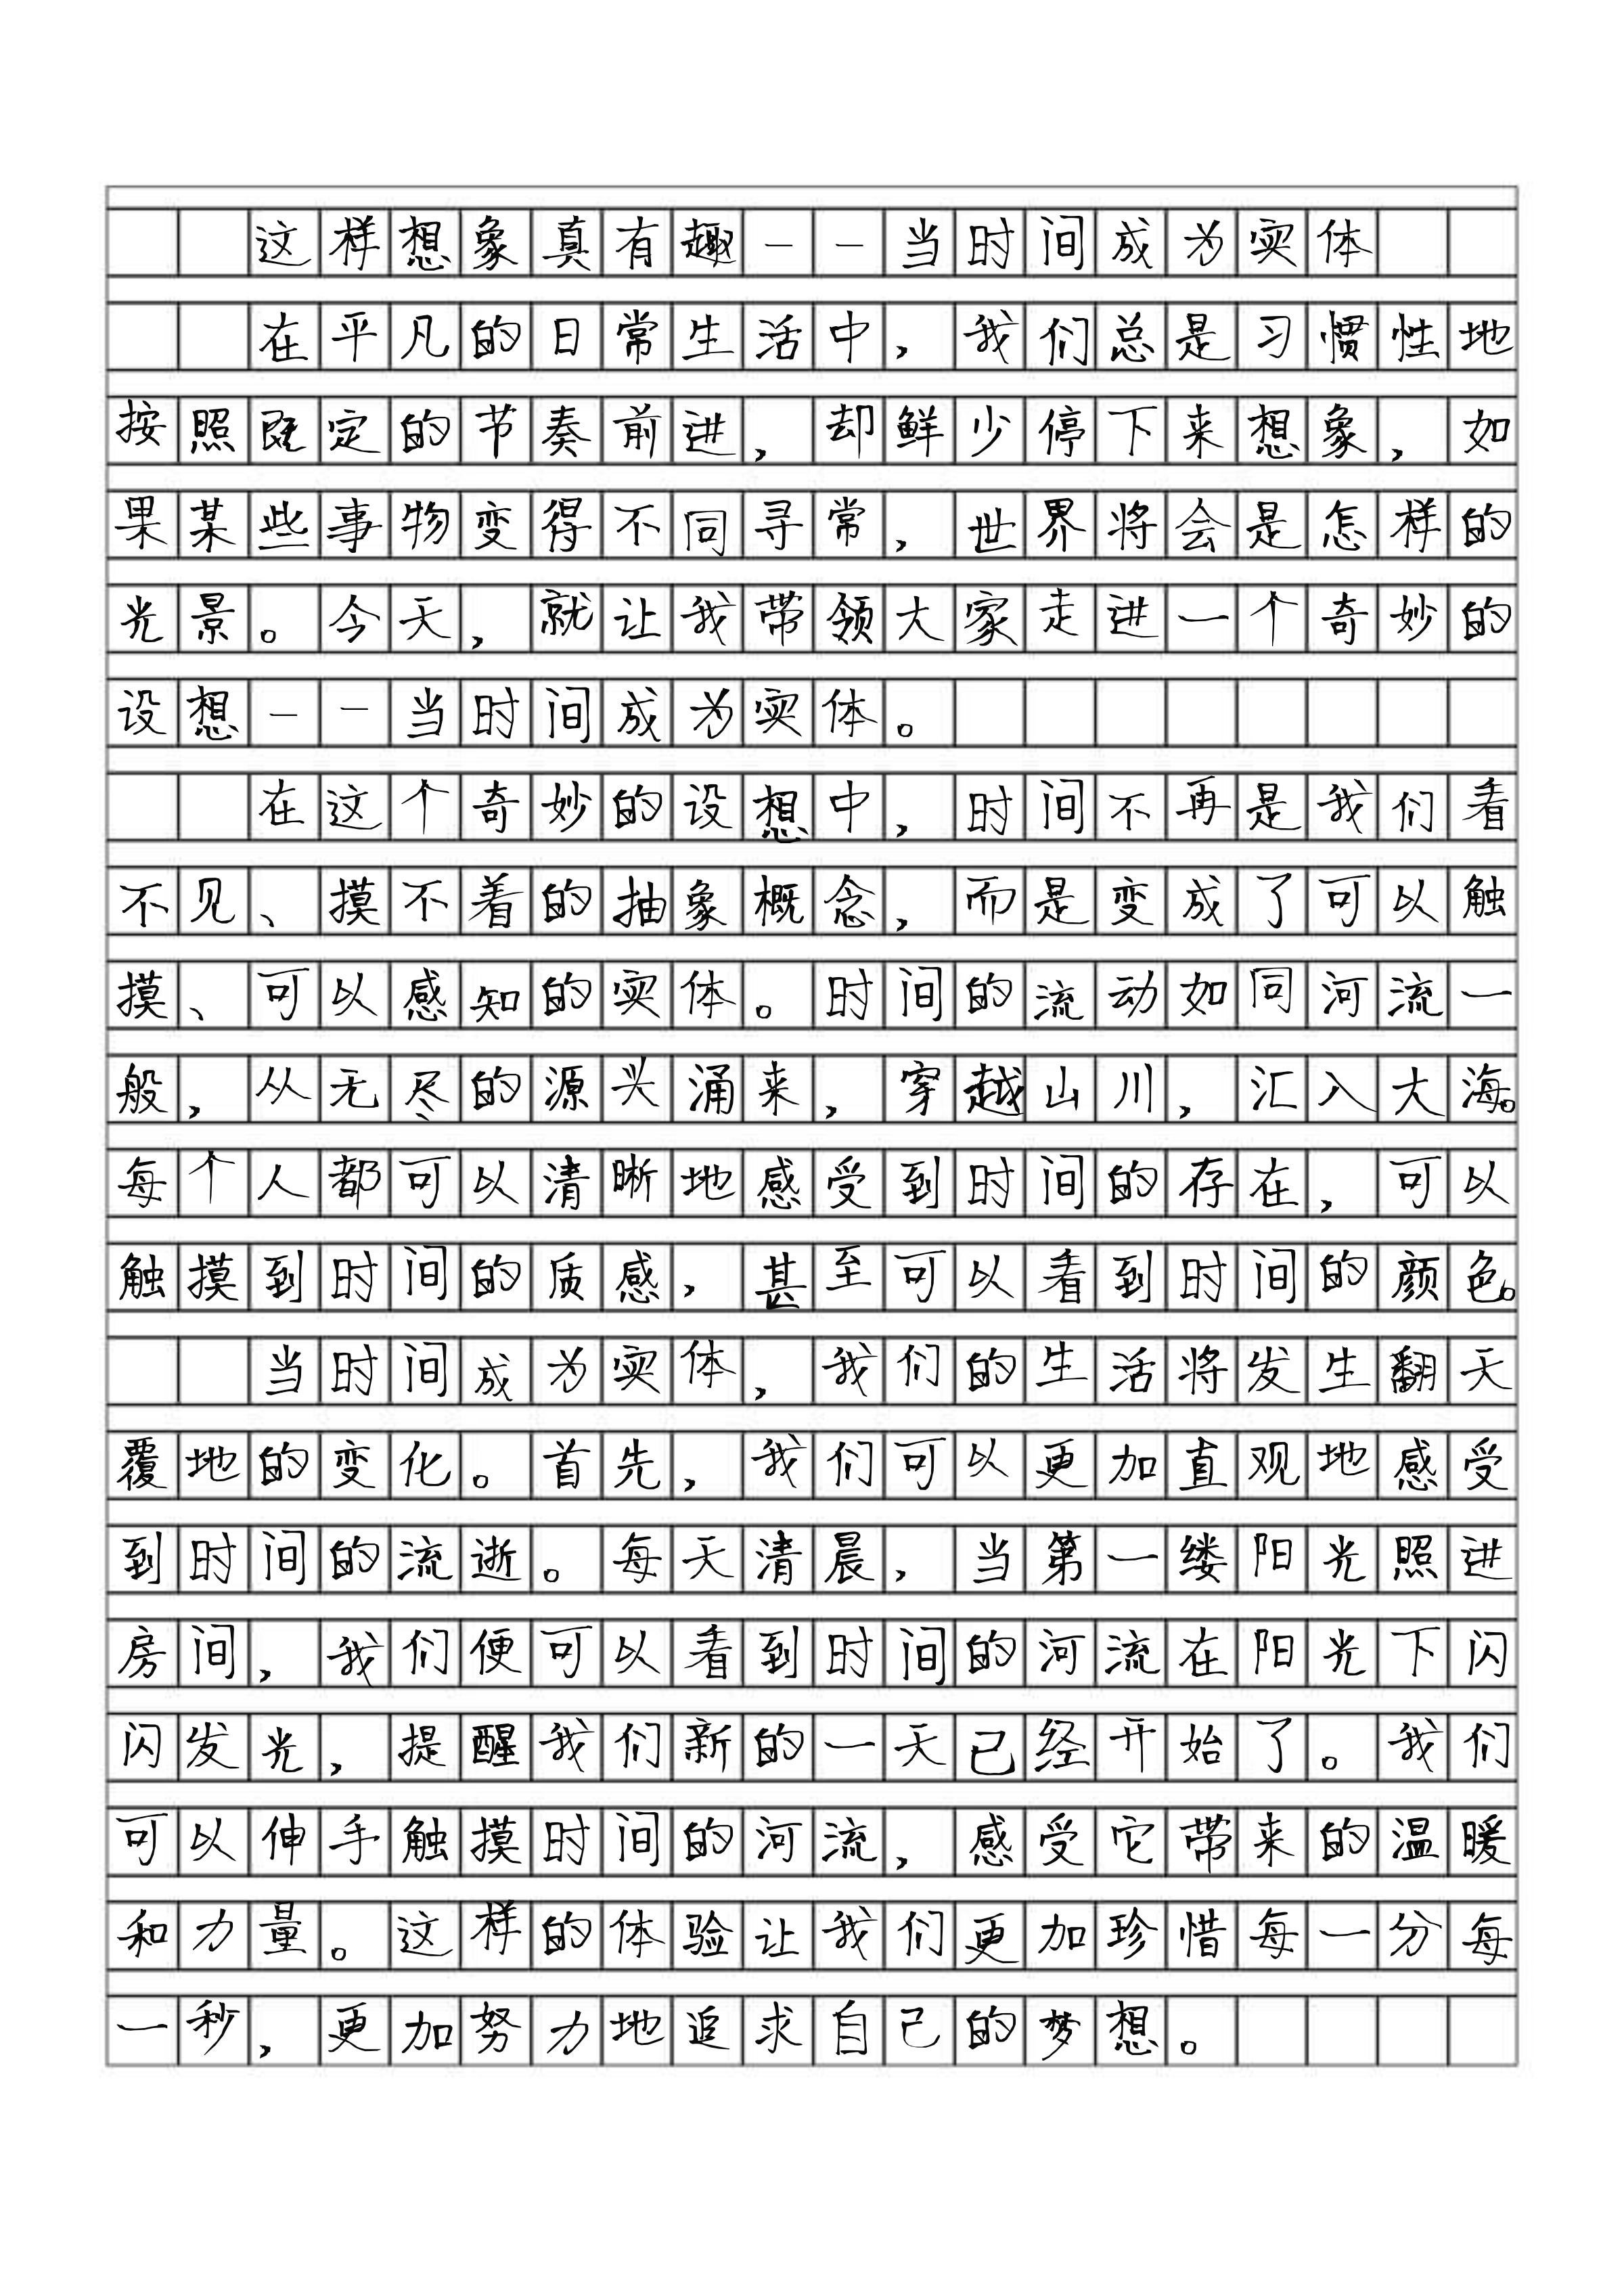 这样想象真有趣——当时间成为实体
在平凡的日常生活中，我们总是习惯性地
按照既定的节奏前进，却鲜少停下来想象，如
果某些事物变得不同寻常，世界将会是怎样的
光景。今天，就让我带领大家走进一个奇妙的
设想——当时间成为实体。
在这个奇妙的设想中，时间不再是我们看
不见、摸不着的抽象概念，而是变成了可以触
摸、可以感知的实体。时间的流动如同河流一
般，从无尽的源头涌来，穿越山川，汇入大海。
每个人都可以清晰地感受到时间的存在，可以
触摸到时间的质感，甚至可以看到时间的颜色。
当时间成为实体，我们的生活将发生翻天
覆地的变化。首先，我们可以更加直观地感受
到时间的流逝。每天清晨，当第一缕阳光照进
房间，我们便可以看到时间的河流在阳光下闪
闪发光，提醒我们新的一天已经开始了。我们
可以伸手触摸时间的河流，感受它带来的温暖
和力量。这样的体验让我们更加珍惜每一分每
一秒，更加努力地追求自己的梦想。